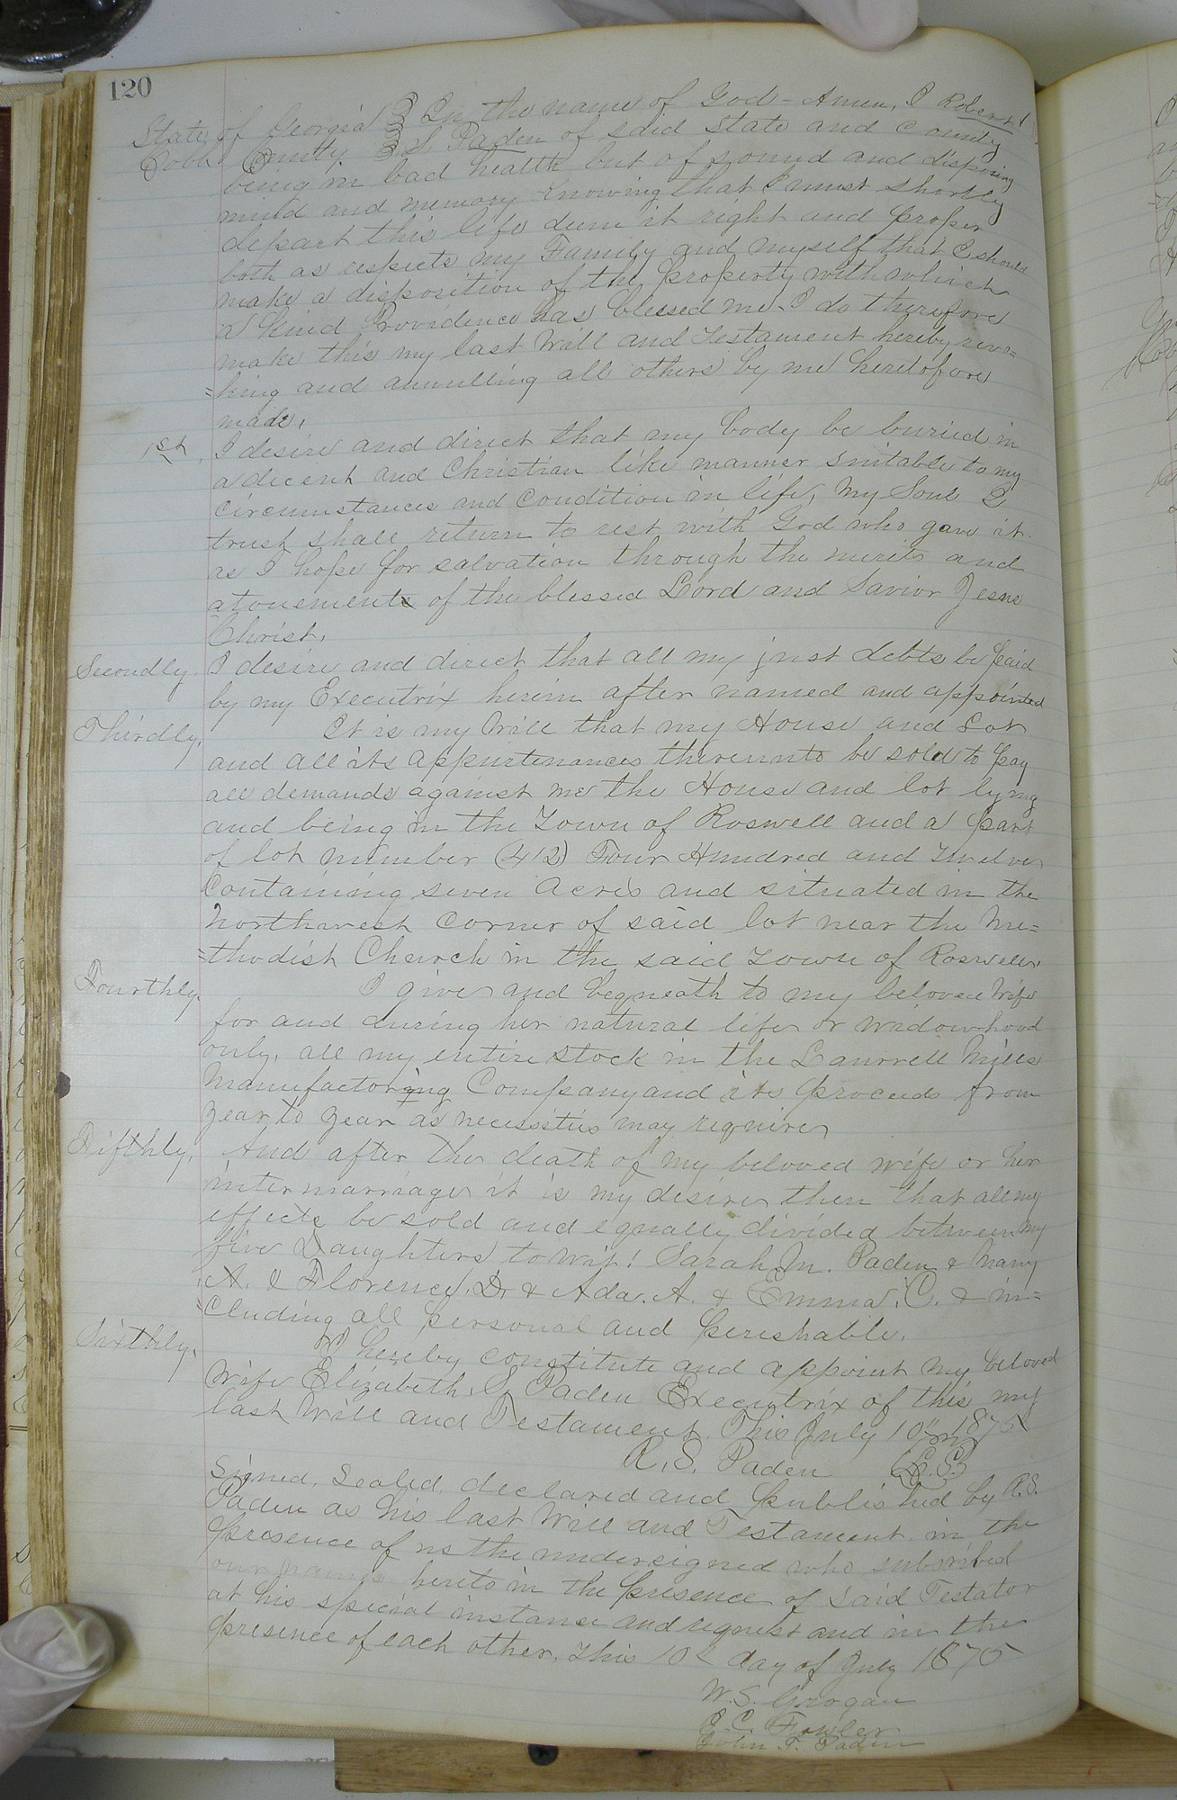 120
State of Georgia } In the name of God - Amen, I Robert
Cobb County. } S. Paden of said State and County
being in bad health but of sound and disposing
mind and memory knowing that I must shortly
depart this life deem it right and proper
both as respects my Family and myself that I should
make a disposition of the property with which
a kind Providence has blessed me. I do therefore
make this my last Will and Testament hereby revo=
=king and annulling all others by me heretofore
made.
1st. I desire and direct that my body be buried in
a decent and Christian like manner suitable to my
circumstances and condition in life, My Soul I
trust shall return to rest with God who gave it
as I hope for salvation through the merits and
atonements of the blessed Lord and Savior Jesus
Christ.
Secondly. I desire and direct that all my just debts be paid
by my Executrix herein after named and appointed
Thirdly. It is my Will that my House and Lot
and all its appurtenances thereunto be sold to pay
all demands against me the House and lot lying
and being in the Town of Roswell and a part
of lot number (412) Four Hundred and Twelve
Containing seven Acres and situated in the
Northwest Corner of said lot near the Me=
=thodist Church in the said Town of Roswell.
Fourthly. I give and bequeath to my beloved Wife
for and during her natural life or widowhood
only, all my entire stock in the Laurrell Mills
Manufactoring Company and its proceeds from
year to year as necessities may require
Fifthly. And after the death of my beloved wife or her
intermarriage it is my desire then that all my
effects be sold and equally divided between my
five Daughters to wit! Sarah M. Paden & Nancy
A. & Florence. D. & Ada. A. & Emma. C. & in=
=cluding all personal and perishable.
Sixthly. I hereby constitute and appoint my beloved
Wife Elizabeth. S. Paden Executrix of this my
last Will and Testament. This July 10th 1875
R. S. Paden (L.S.)
Signed, Sealed, declared and published by R.S.
Paden as his last Will and Testament in the
presence of us the undersigned who subscribed
our names hereto in the presence of said Testator
at his special instance and request and in the
presence of each other. This 10th day of July 1875
W. S. Grogan
E. C. Fowler
John F. Paden